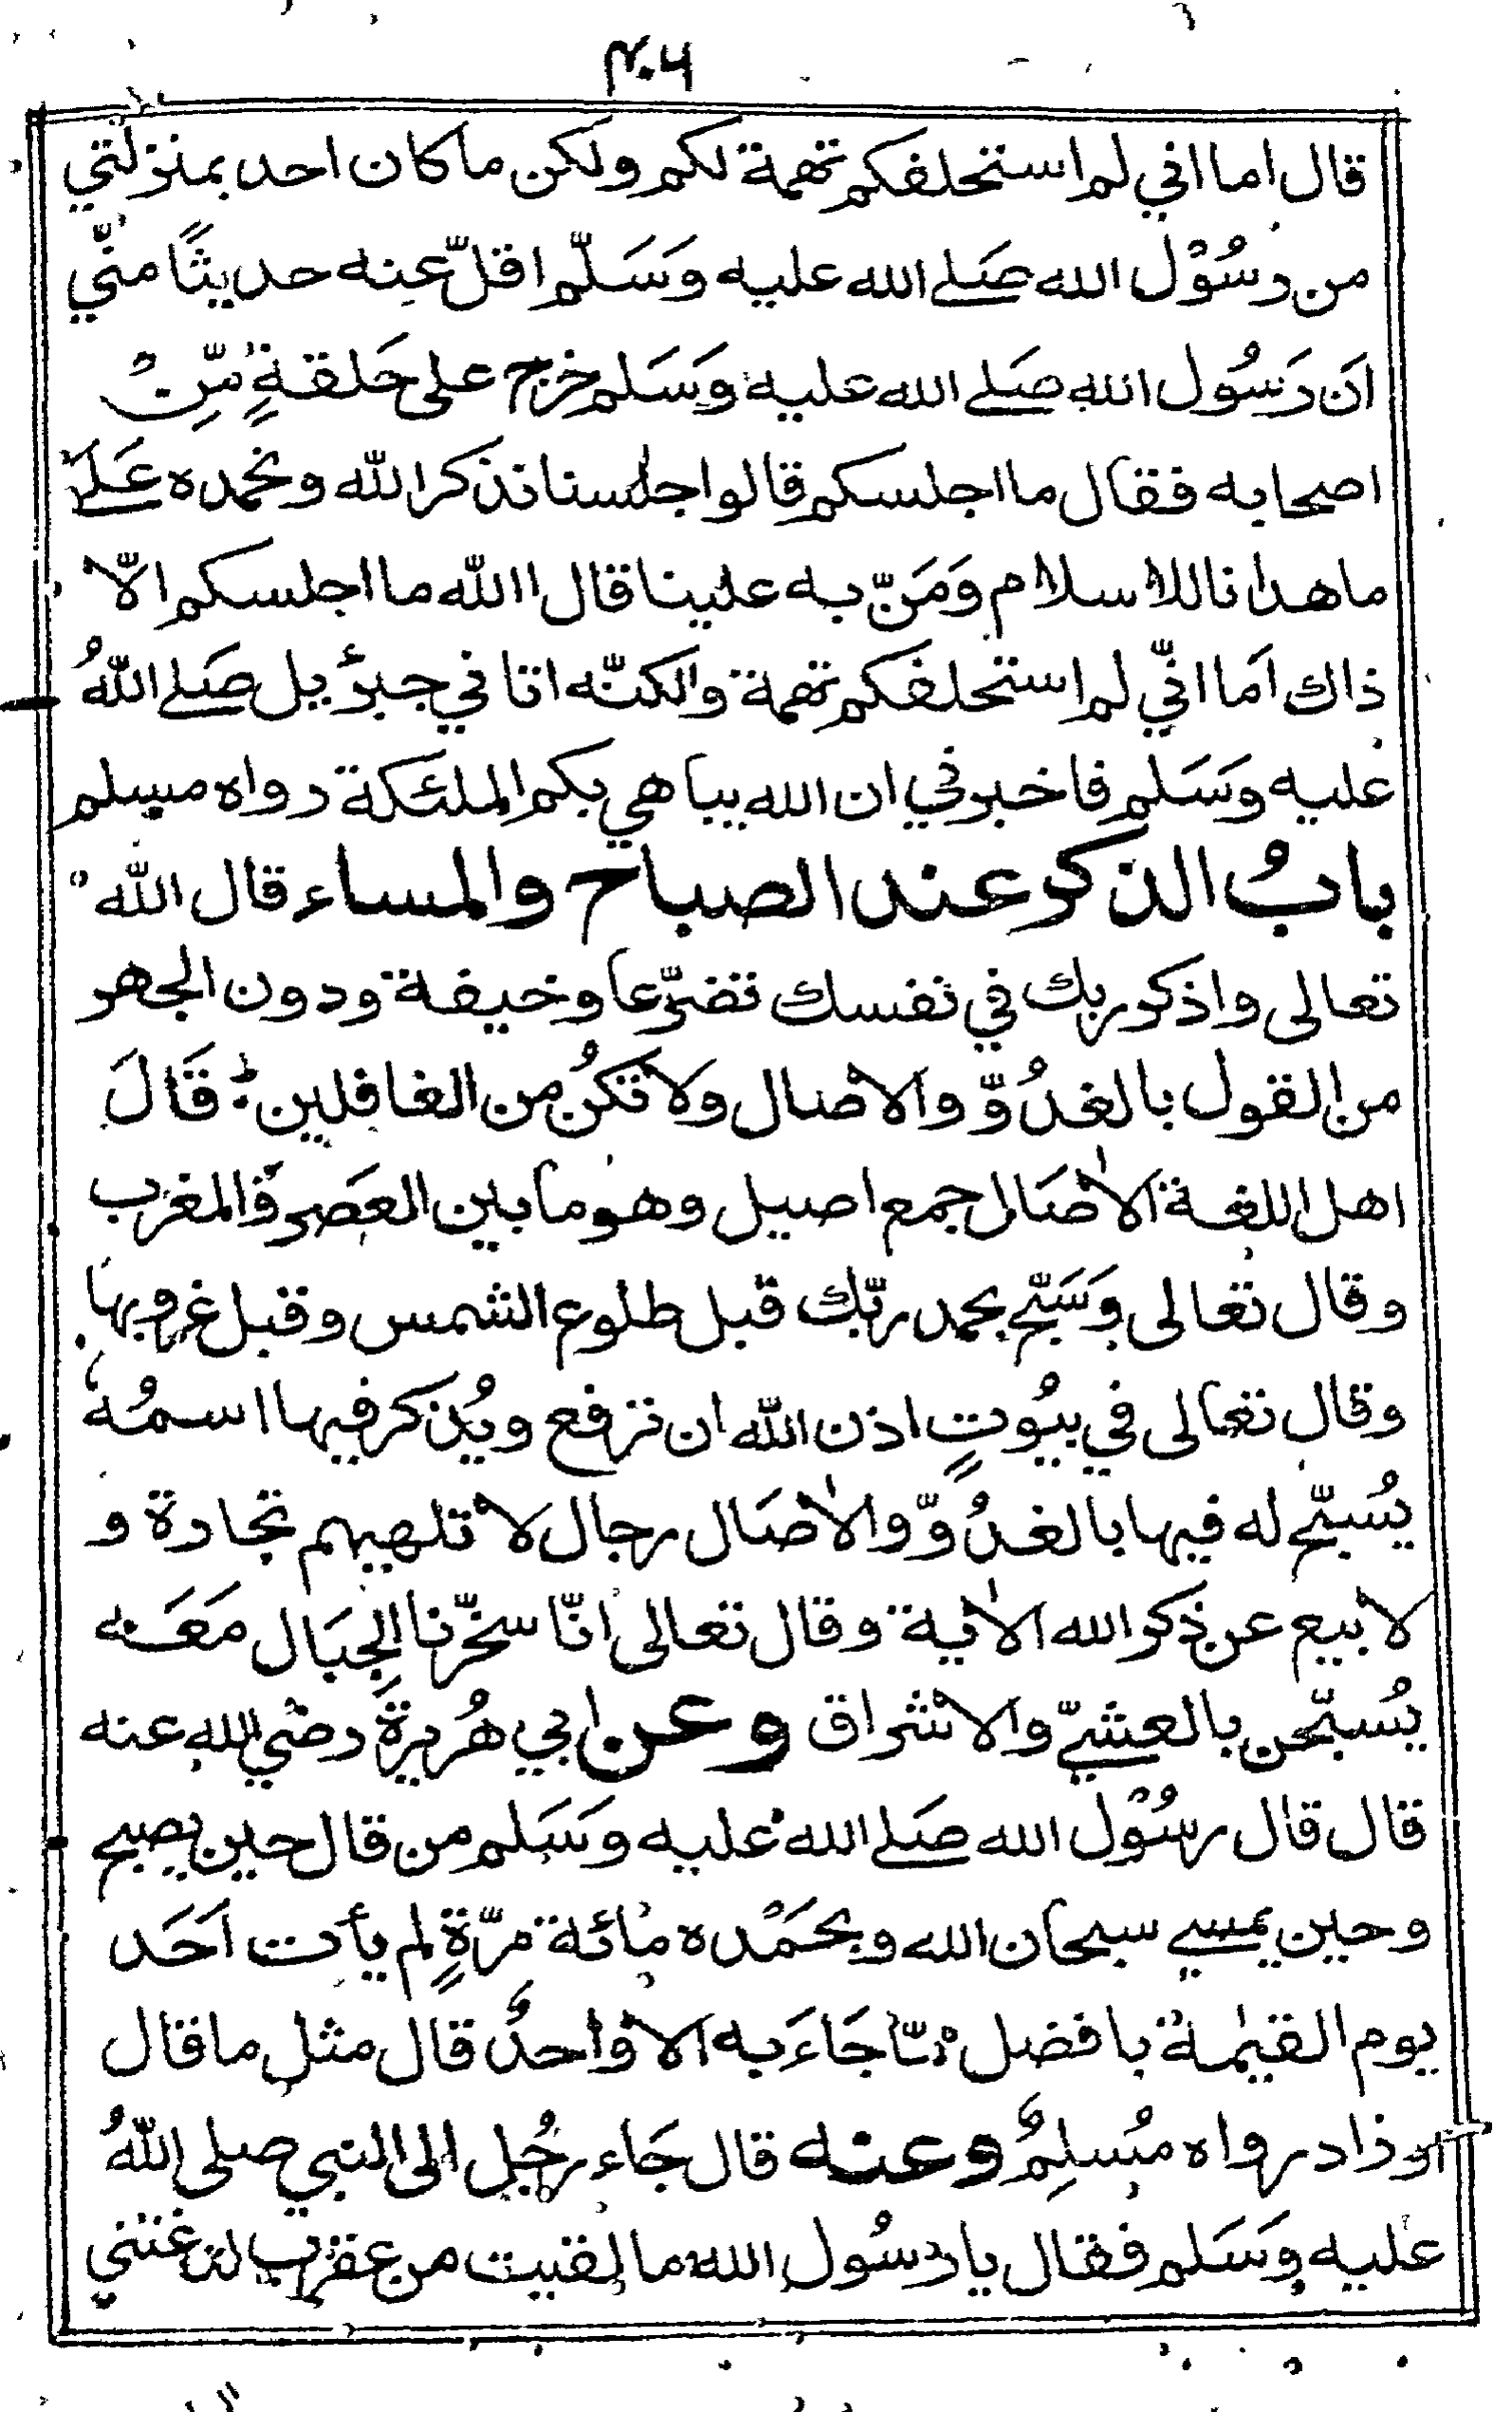 ۴۰۶
قال اما اني لم استحلفكم تهمة لكم ولكن ما كان احد بمنزلتي
من رسُوْل الله صَلے الله عليه وَسَلّم اقلّ عنه حديثًا منّي
اَن رَسُول الله صَلے الله عليه وَسَلم خرج على حَلقةٍ مِّنْ
اصحابه فقال ما اجلسكم قالوا جلسنا نذكر الله ونحمده عَلےٰ
ما هدانا للاسلام وَمَنّ به علينا قال االله ما اجلسكم الّا
ذاك اَما انّي لم استحلفكم تهمة والكنّه اتاني جبرئيل صَلے اللهُ
عليه وَسَلم فاخبرني ان الله يباهي بكم الملئكة رواه مسلم
بابُ الذكر عند الصباح والمساء قال الله
تعالى واذكر ربك في نفسك تضرّعا وخيفة ودون الجهر
من القول بالغدُوّ والاٰصال ولا تكنُ من الغافلين ؛ قَالَ
اهل اللغة الاٰصَال جمع اصيل وهو ما بين العَصر والمغرب
وقال تعالى وَسَبّح بحمد ربّك قبل طلوع الشمس وقبل غروبها
وقال تعالى في بيُوتٍ اذن الله ان ترفع ويُذكر فيها اسمُهٗ
يُسَبّح له فيها بالغدُوّ والاٰصَال رجال لا تلهيهم تجارة و
لا بيع عن ذكر الله الاٰية وقال تعالى انّا سخّرنا الجِبَال مَعَهٗ
يُسبّحن بالعشيّ والاشراق وعن ابي هُريرة رضي الله عنه
قال قال رسُوْل الله صَلے الله عليه وَسَلم من قال حين يصبح
وحين يمسے سبحان الله وبحَمْده مائة مرّةٍ لم يأت اَحَد
يوم القيٰمة بافضل مّمّا جَاءَ به الا واحدٌ قال مثل ما قال
او زاد رواه مُسلِمٌ وعنه قال جَاء رجُل الى النبي صلى اللهُ
عليه وَسَلم فقال يا رسُول الله ما لقيت من عقرب لدغتني